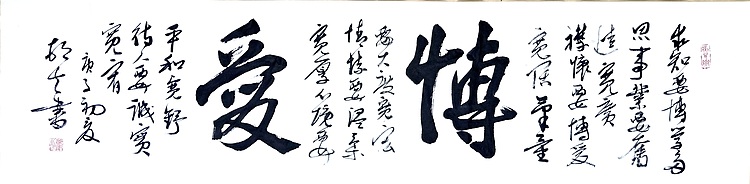 求知要博学多
思事業要奮
進寬廣
襟懷要博愛
寬深氣量
博
要大度寬宏
情懷要溫柔
寬厚心境要
愛
平和寬舒
待人要誠實
寬容
庚子初夏
書